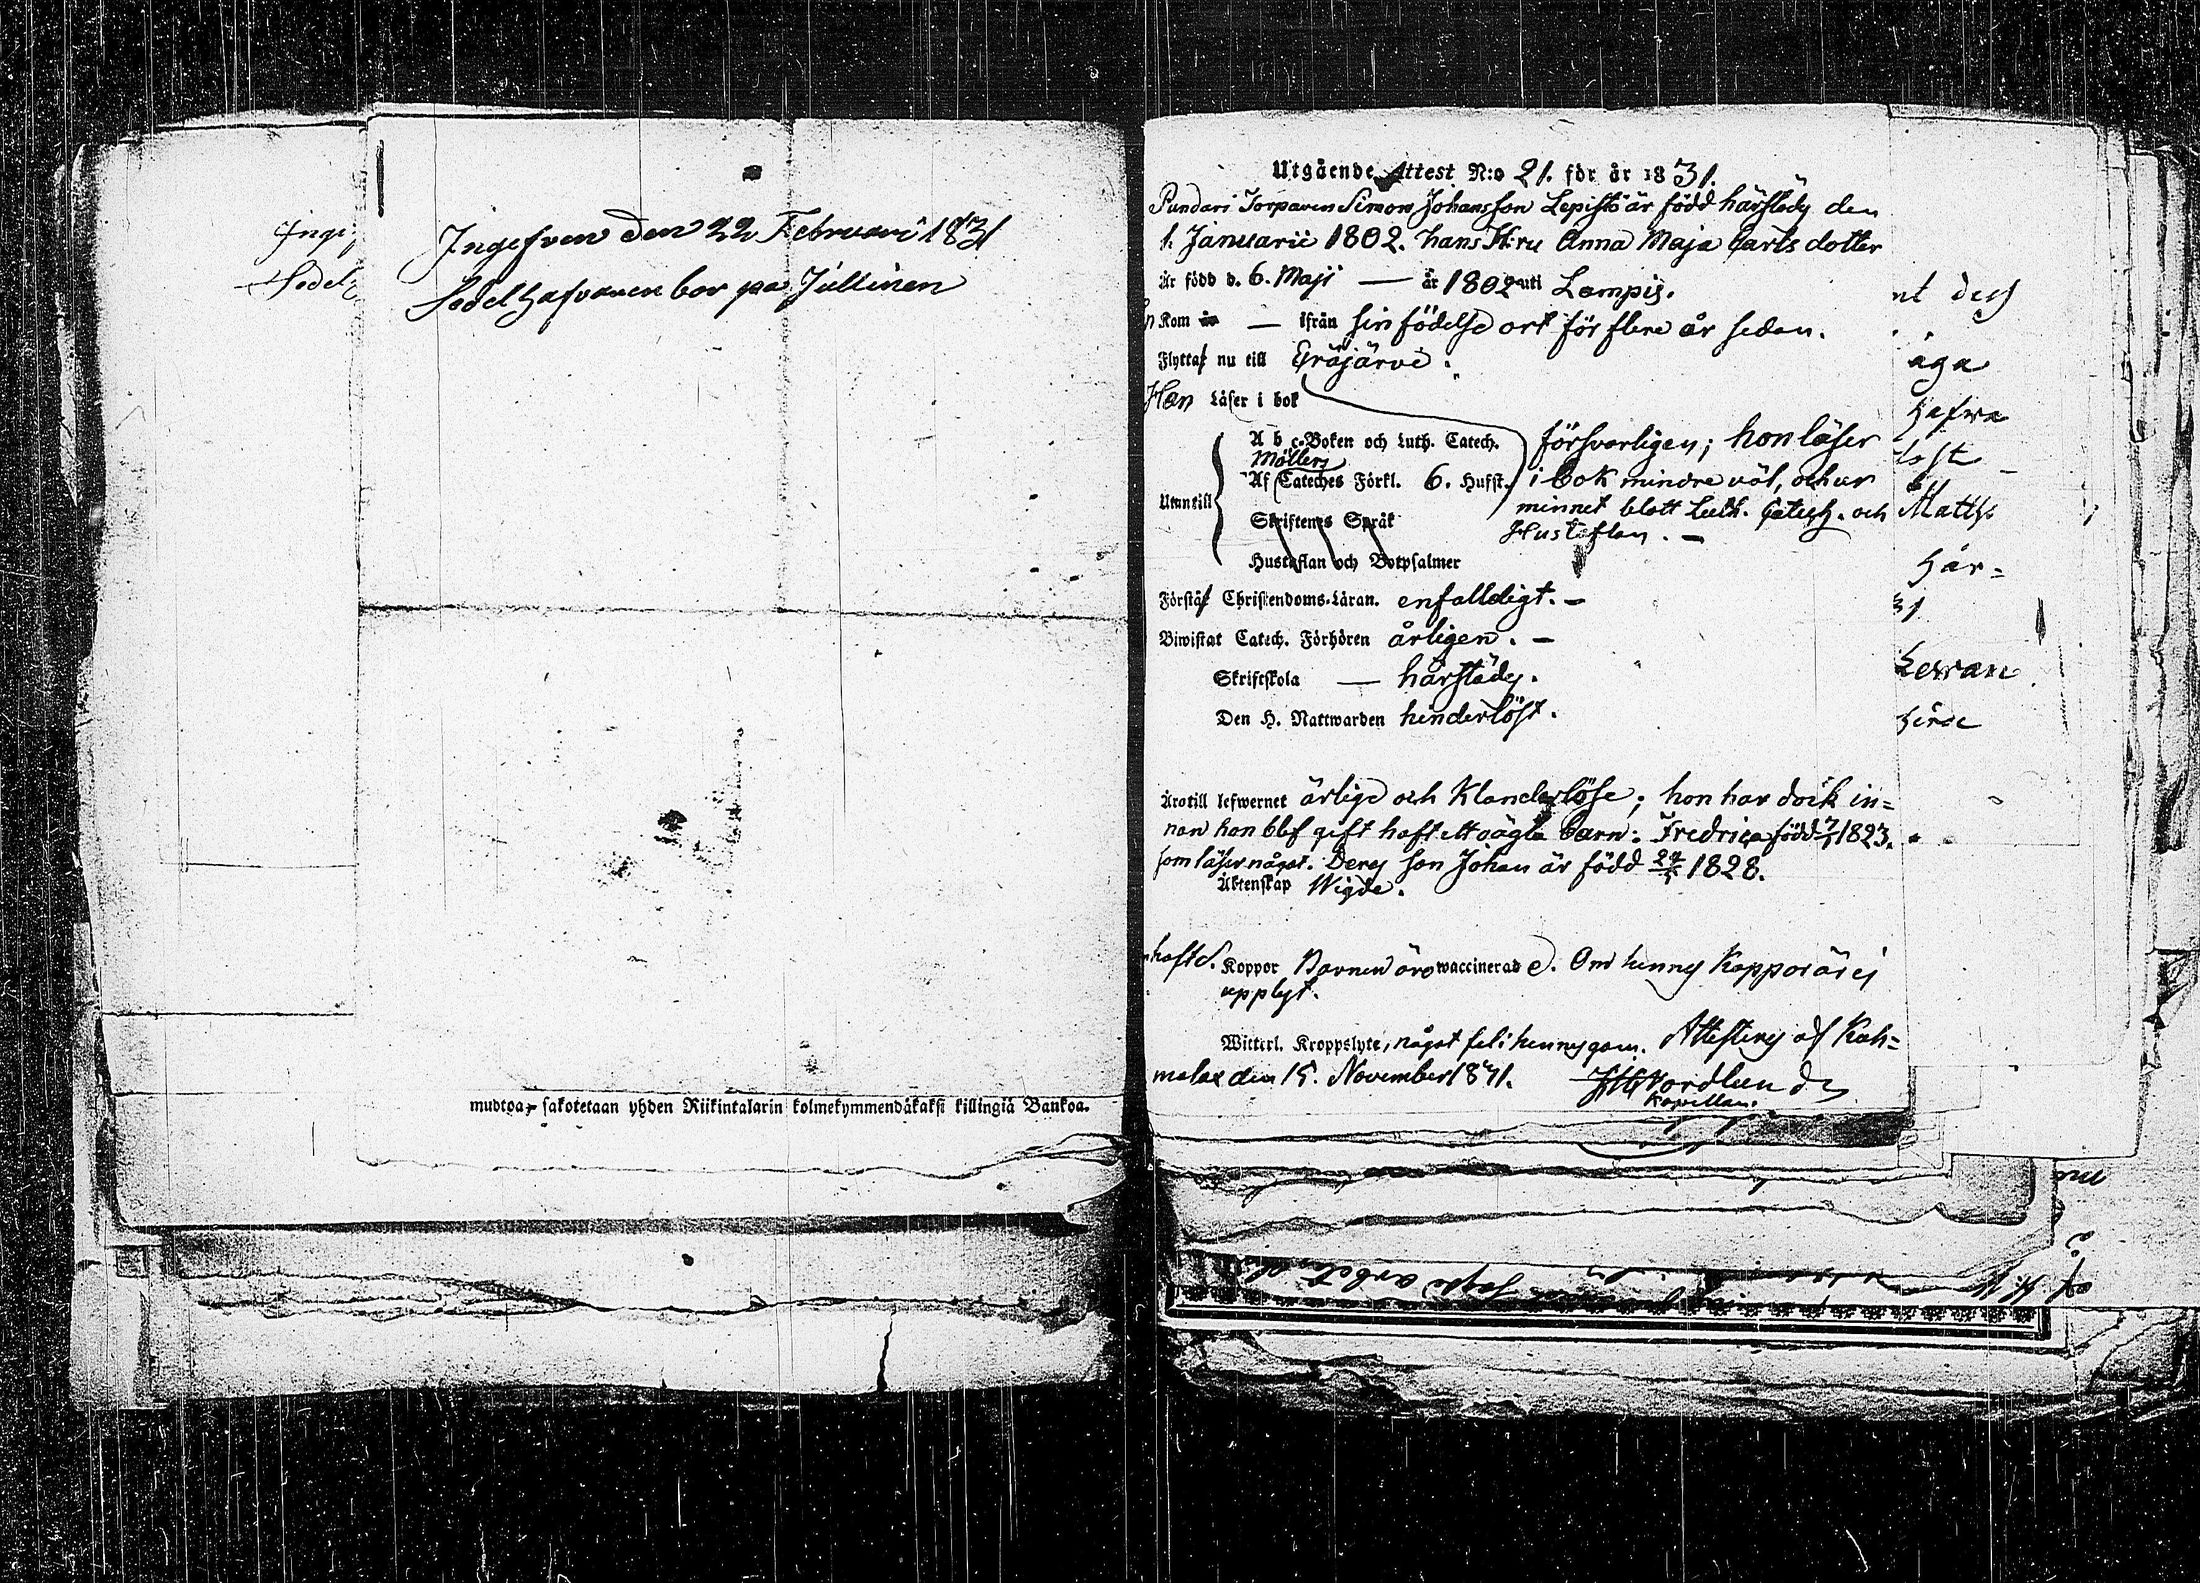 Ingifven den 22 Februari 1831
Sedelhafvaren bor på Jullinen
mudtoa, sakotetaan yhden Riikintalarin kolmekymmendäkaksi killingiä Bankoa.
Utgående Attest N:o 21. för år 1831.
Pundari Torparen Simon Johansson Lepistö är född härstädes den
1. Januarii 1802. hans H:ru Anna Maja Carlsdotter
Är född d. 6. Maji — år 1802 uti Lampis.
Kom år — ifrån sin födelse ort för flere år sedan.
Flytta nu till Gräjärvi.
Han Läser i bok
A b c-Boken och Luth. Catech. försvarligen; hon läser
Möllers
Utantill Af Cateches Förkl. 6. Hufst. i bok mindre väl, och ur
minnet blott Luth. Catech. och
Skriftenes Språk
Hustaflan. —
Hustaflan och Botpsalmer
Förstå Christendoms-Läran. enfalldigt. —
Biwistat Catech. Förhören årligen. —
Skriftskola — härstädes.
Den H. Nattwarden hinderlöst.
Äro till lefwernet ärlige och Klanderlöse; hon har dock in=
nan hon blef gift haft ett oägta barn: Fredrica född 7/1 1823.
som läser något. Deras son Johan är född 1828.
Äktenskap Wigde.
haft Koppor Barnen äro waccinerade. Om hennes Koppor är ej
upplyst.
Witterl. Kroppslyte, något fel i hennes ögon. Attesteras af Kuh=
malax den 15. November 1831.
Nordlund
Kapellan.
nt dess
äga
hafva
Matths
här=
31